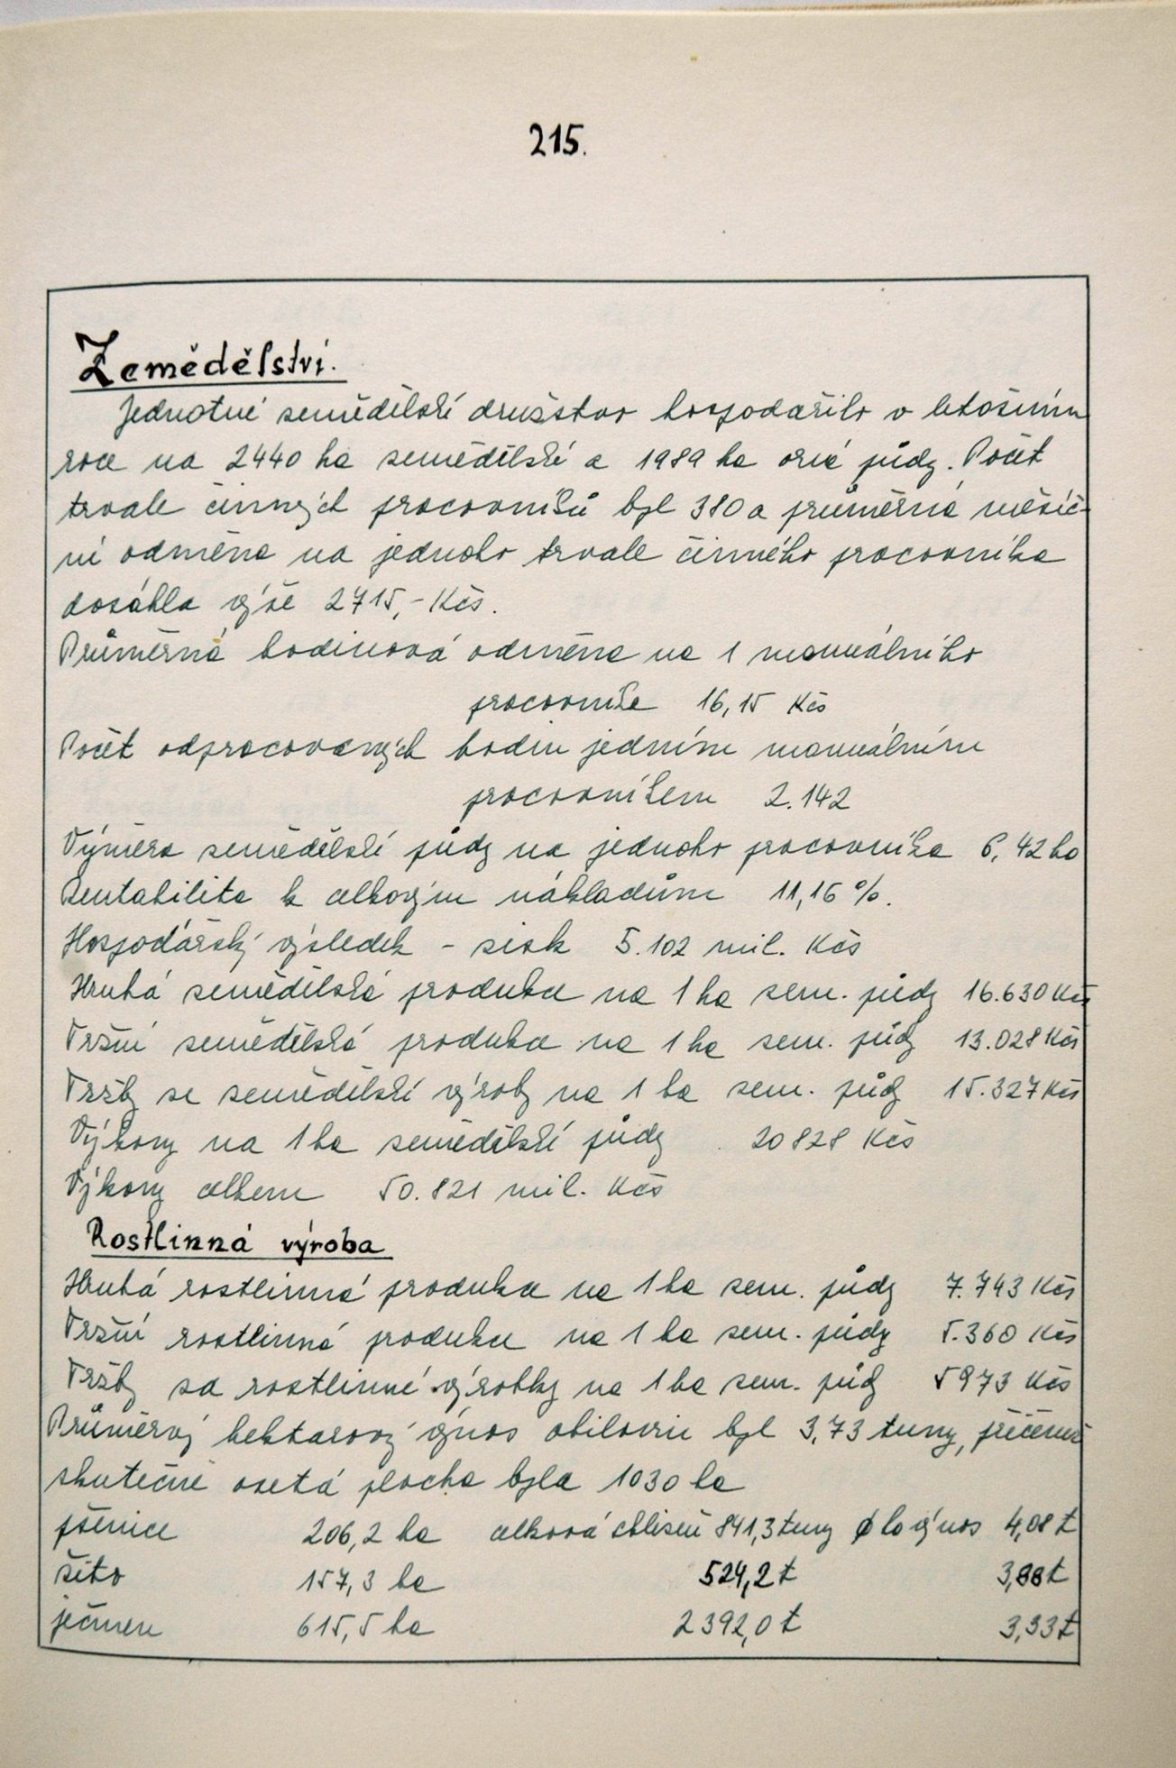 215.
Zemědělství.
Jednotné zemědělské družstvo hospodařilo v letošním
roce na 2440 ha zemědělské a 1989 ha orné půdy. Počet
trvale činných pracovníků byl 380 a průměrná měsíč-
ní odměna na jednoho trvale činného pracovníka
dosáhla výše 2715,- Kčs.
Průměrná hodinová odměna na 1 manuálního
pracovníka 16,15 Kčs
Počet odpracovaných hodin jedním manuálním
pracovníkem 2.142
Výměra zemědělské půdy na jednoho pracovníka 6,42 ha
Rentabilita k celkovým nákladům 11,16 %.
Hospodářský výsledek - zisk 5.102 mil. Kčs
Hrubá zemědělská produkce na 1 ha zem. půdy 16.630 Kčs
Tržní zemědělská produkce na 1 ha zem. půdy 13.028 Kčs
Tržby ze zemědělské výroby na 1 ha zem. půdy 15.327 Kčs
Výkony na 1 ha zemědělské půdy 20828 Kčs
Výkony celkem 50.821 mil. Kčs
Rostlinná výroba
Hrubá rostlinná produkce na 1 ha zem. půdy 7.743 Kčs
Tržní rostlinná produkce na 1 ha zem. půdy 5.360 Kčs
Tržby za rostlinné výrobky na 1 ha zem. půdy 5973 Kčs
Průměrný hektarový výnos obilovin byl 3,73 tuny, přičemž
skutečně osetá plocha byla 1030 ha
pšenice 206,2 ha celková sklizeň 841,3 tuny ø ha výnos 4,08 t
žito 157,3 ha 524,2 t 3,88 t
ječmen 615,5 ha 2392,0 t 3,33 t